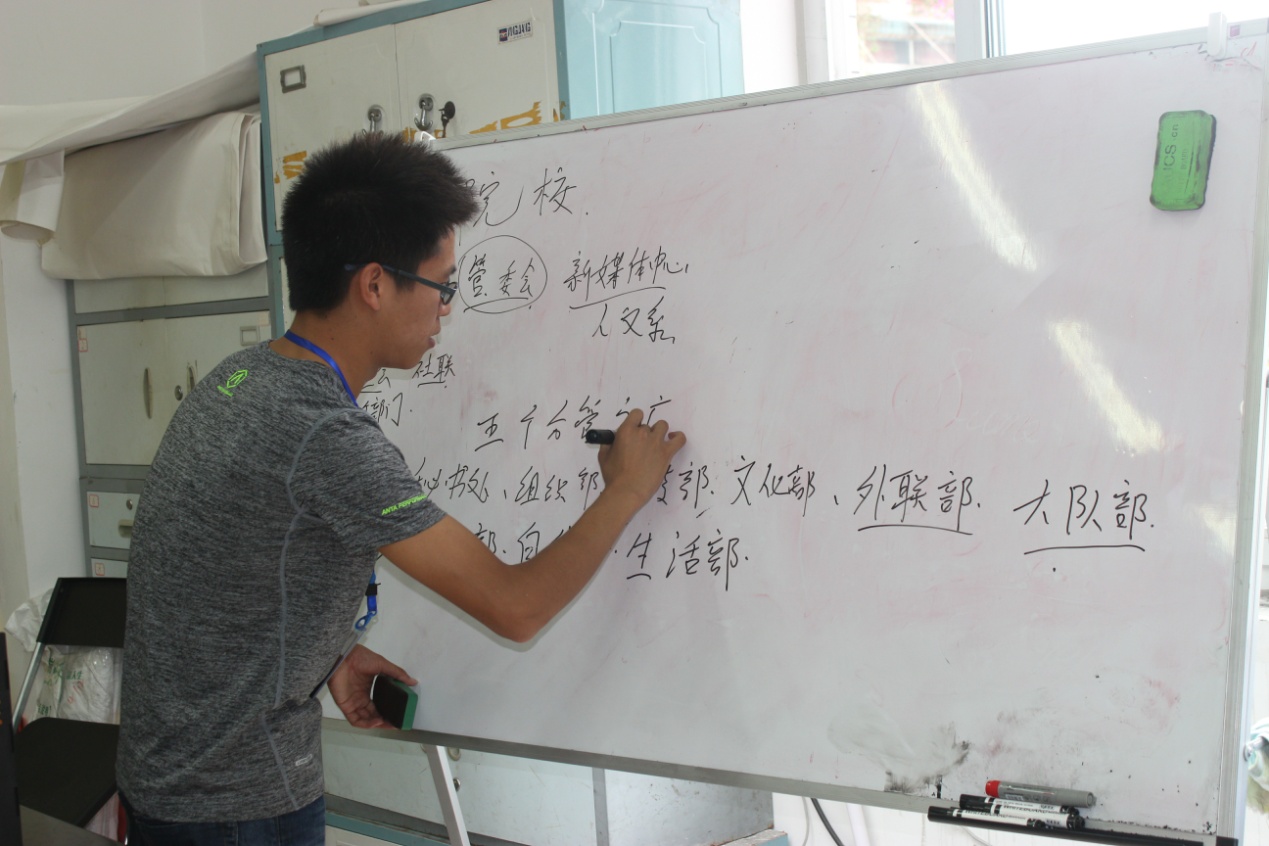 院校.
管委会 新媒体中心,
人文系
社联
部门.
五个分管
秘书处、组织部 部. 文化部、外联部. 大队部.
部. 自 . 生活部.
ANTA
ICS.cn